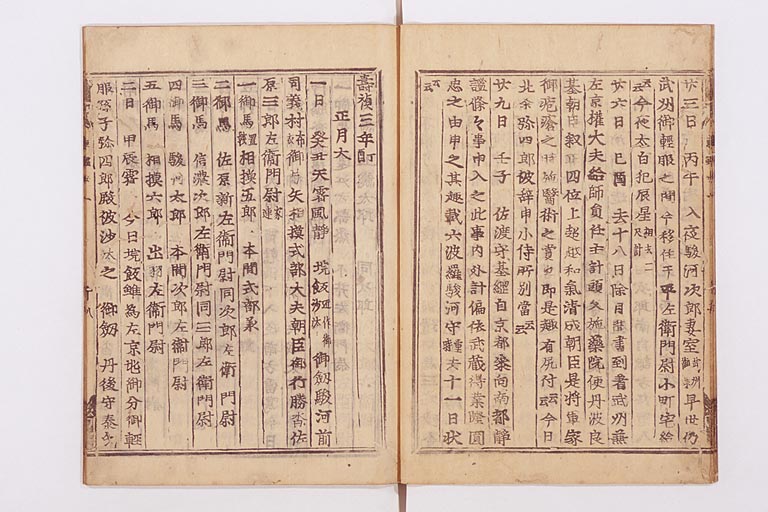 廿三日 丙午 入夜駿河次郎妻室早世仍
武州御輕服之間今移住于平左衛門尉小町宅給
云云今夜太白犯辰星
廿六日 己酉 去十八日除目聞書到着武州兼
左京權大夫給師員任主計頭久施藥院使丹波良
基朝臣叙正四位上超越和氣清成朝臣是將軍家
御疱瘡之時醫術之賞也即是趣有所付云云今日
北条弥四郎破辞申小侍所別當云云
廿九日 壬子 佐渡守基綱自京都歸向南都靜
謐條々事申入之此事内外計偏依武藏得業隆圓
忠之由申之其趣載六波羅駿河守去十一日状
云云
嘉禎三年
正月大
一日 癸丑天霽風静 垸飯 御劔駿河前
司義村 御弓矢相摸式部大夫朝臣御行騰沓佐
原三郎左衛門尉
一御馬 相摸五郎 本間式部丞
二御馬 佐原新左衛門尉同次郎左衛門尉
三御馬 信濃次郎左衛門尉同三郎左衛門尉
四御馬 駿河太郎 本間次郎左衛門尉
五御馬 相摸六郎 出羽左衛門尉
二日 甲寅霽 今日垸飯雖為左京兆御分御輕
服孫子弥四郎殿被沙汰之 御劔 丹後守泰